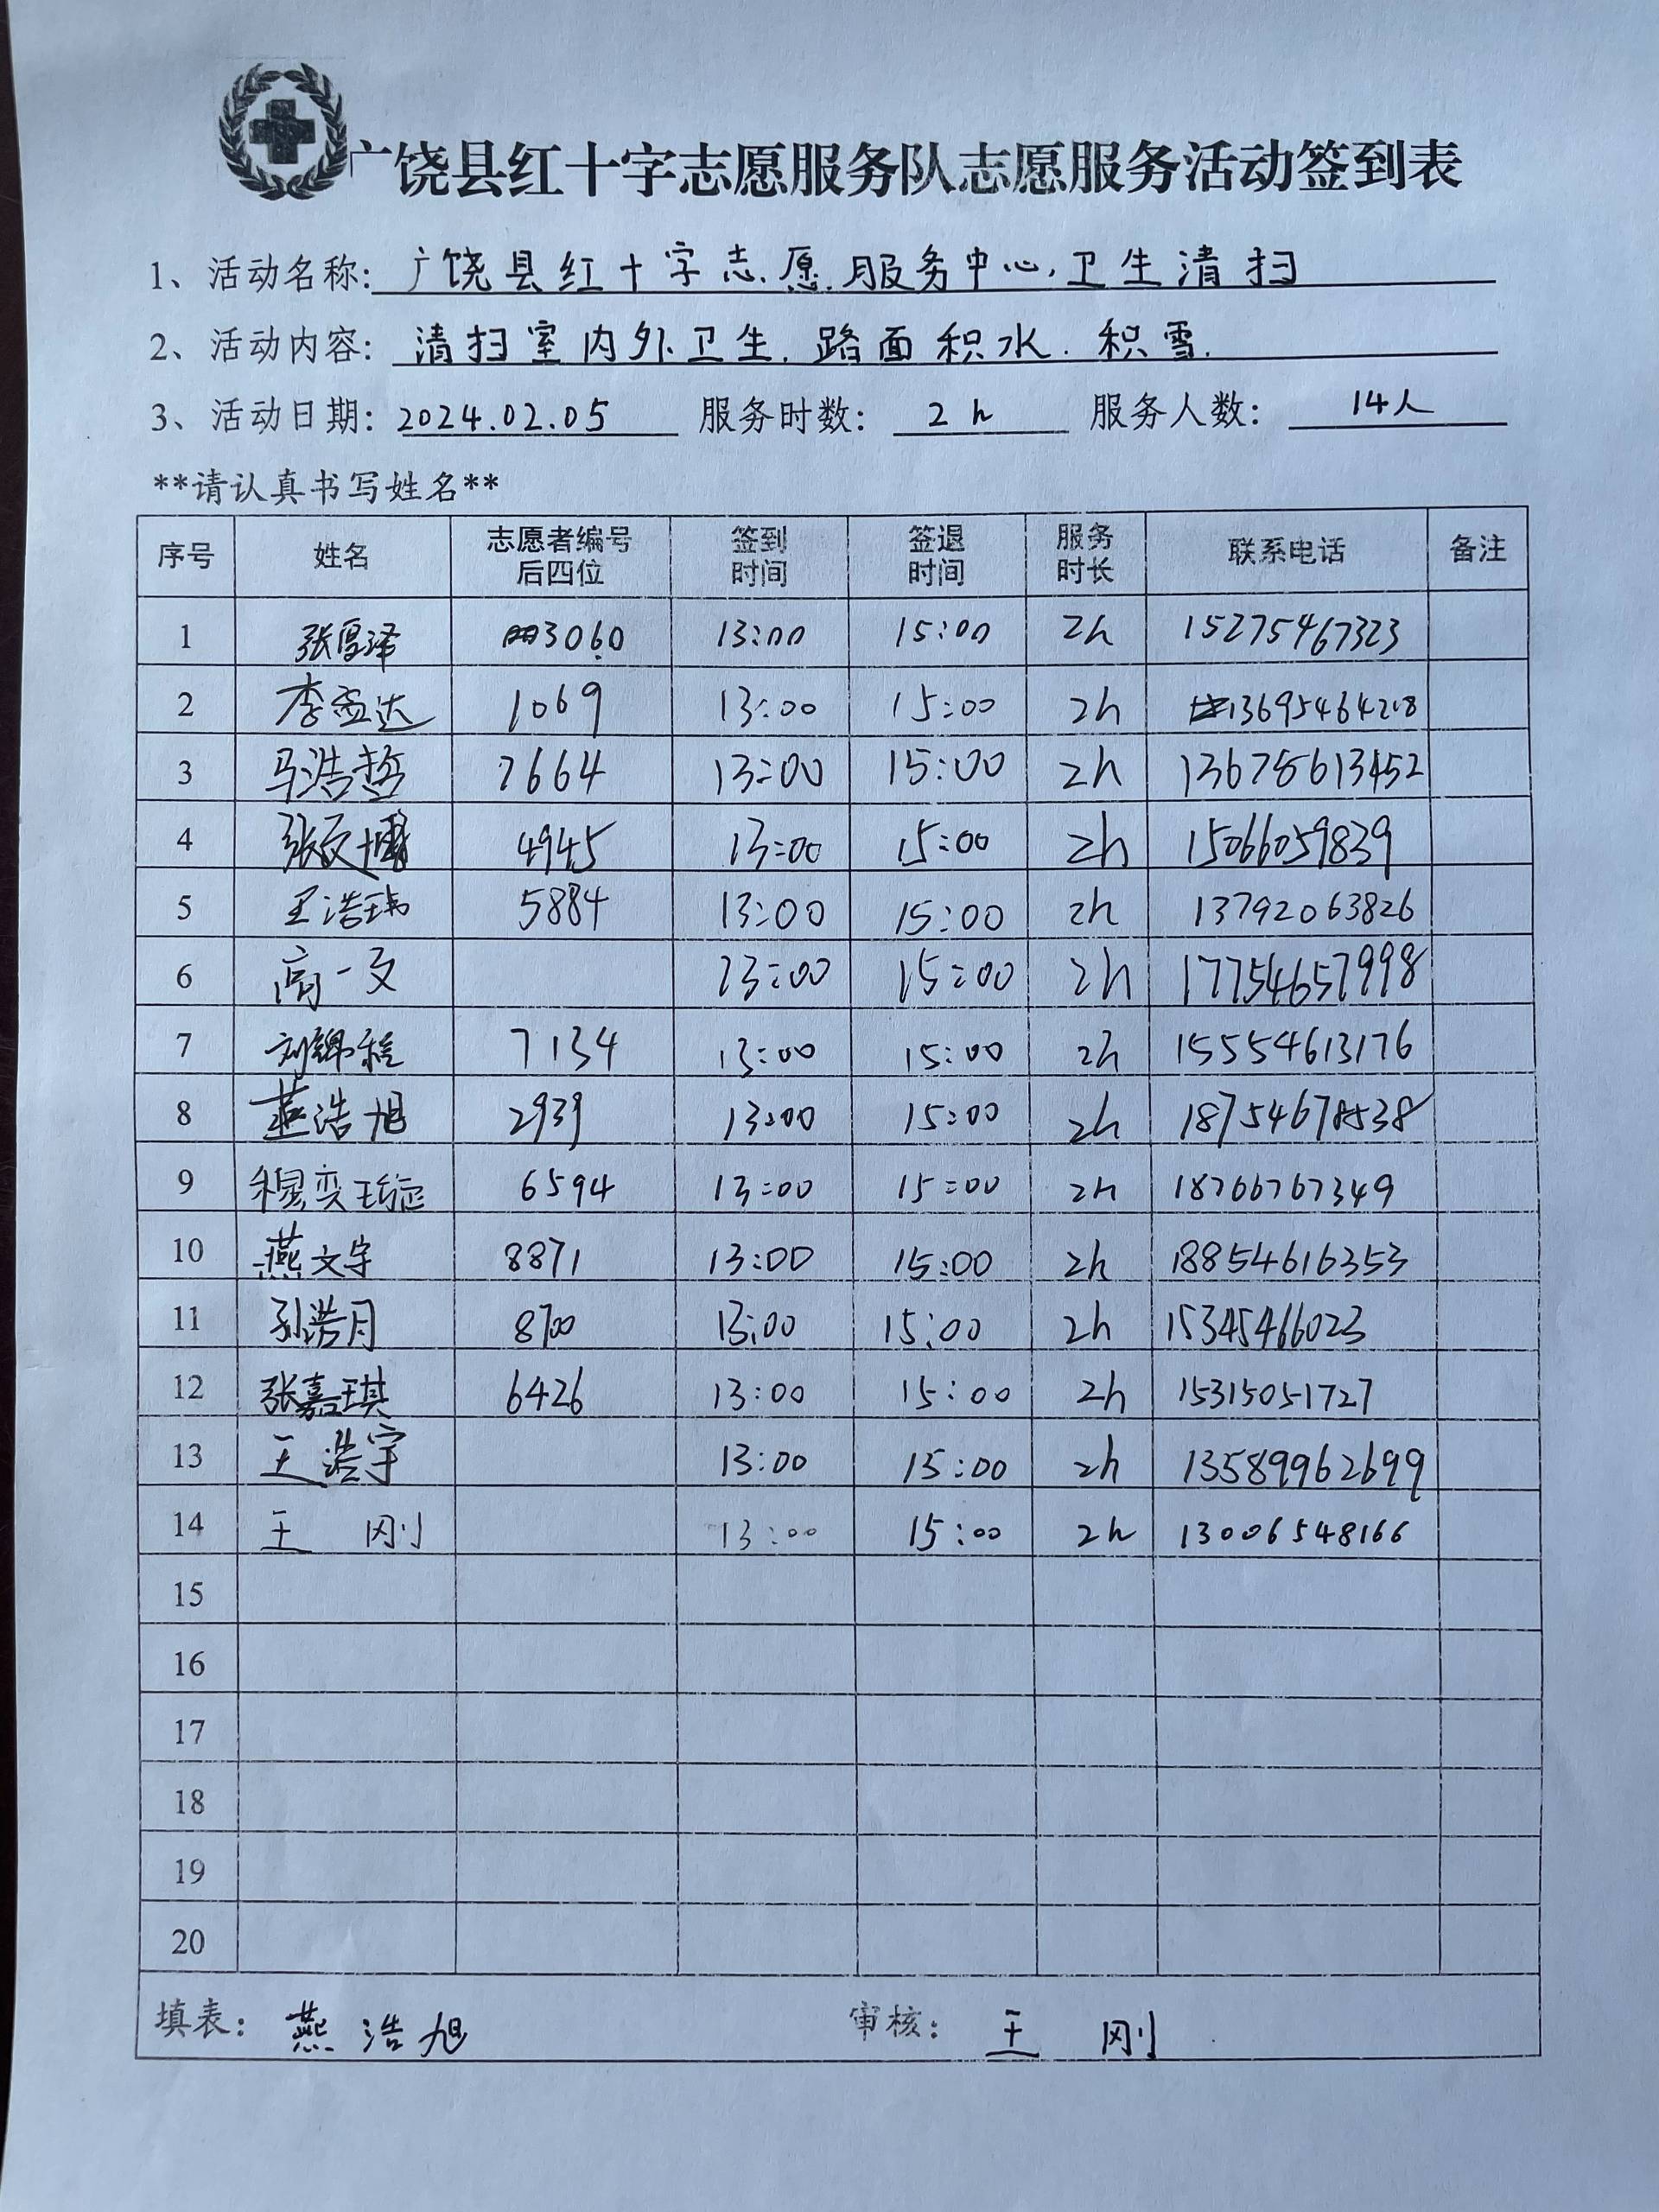 广饶县红十字志愿服务队志愿服务活动签到表
1、活动名称: 广饶县红十字志愿服务中心卫生清扫
2、活动内容: 清扫室内外卫生.路面积水.积雪.
3、活动日期: 2024.02.05 服务时数: 2h 服务人数: 14人
**请认真书写姓名**
序号 姓名 志愿者编号后四位 签到时间 签退时间 服务时长 联系电话 备注
1 张厚泽 3060 13:00 15:00 2h 15275467323
2 李孟达 1069 13:00 15:00 2h 13695464218
3 马浩哲 7664 13:00 15:00 2h
4 张文博 4945 13:00 15:00 2h 15066059839
5 王浩玮 5884 13:00 15:00 2h 13792063826
6 高一文 13:00 15:00 2h 17754657998
7 刘锦程 7134 13:00 15:00 2h 15554613176
8 燕浩旭 2939 13:00 15:00 2h
9 6594 13:00 15:00 2h 18766767349
10 燕文宇 8871 13:00 15:00 2h 18854616353
11 孙浩月 8700 13:00 15:00 2h 15345466023
12 张嘉琪 6426 13:00 15:00 2h 15315051727
13 王浩宇 13:00 15:00 2h 13589962699
14 王刚 13:00 15:00 2h 13006548166
15
16
17
18
19
20
填表: 燕浩旭 审核: 王刚